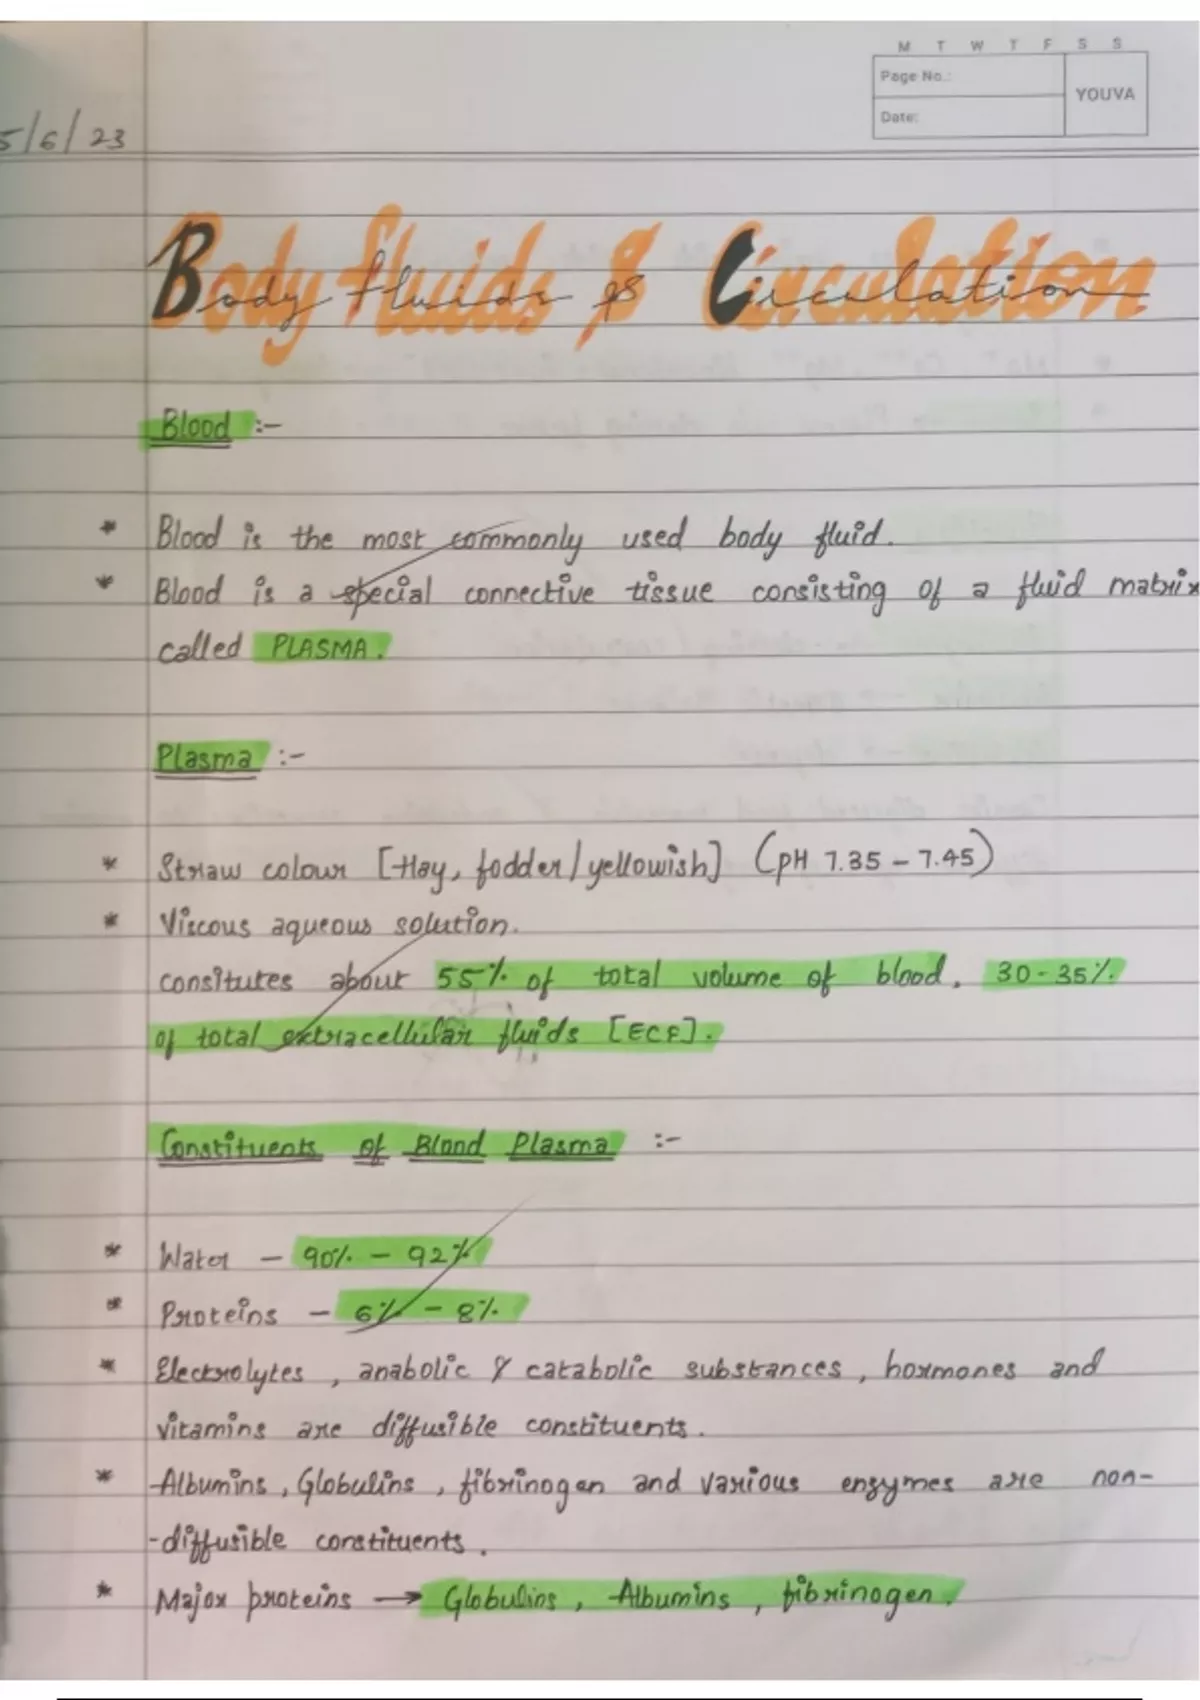 M T W T F S S
Page No.:
YOUVA
Date:
5/6/23
Body fluids & Circulation
Blood :-
* Blood is the most commonly used body fluid.
* Blood is a special connective tissue consisting of a fluid matrix
called PLASMA.
Plasma :-
* Straw colour [Hay, fodder/yellowish] (pH 7.35 - 7.45)
* Viscous aqueous solution.
consitutes about 55% of total volume of blood, 30-35%
of total extracellular fluids [ECF].
Constituents of Blood Plasma :-
* Water - 90% - 92%
* Proteins - 6% - 8%
* Electrolytes, anabolic & catabolic substances, hormones and
vitamins are diffusible constituents.
* Albumins, Globulins, fibrinogen and various enzymes are non-
-diffusible constituents.
* Major proteins → Globulins, Albumins, fibrinogen.